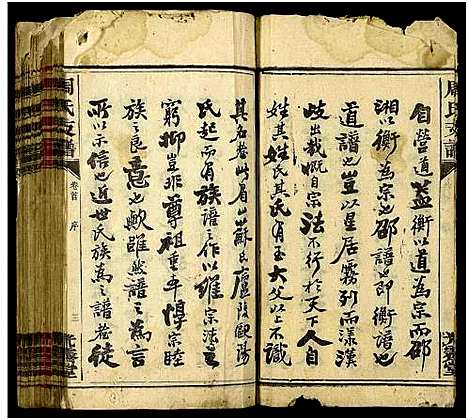 自營道蓋衡以道為宗而邵
湘以衡為宗也邵譜也即衡譜也
道譜也豈以星居霧列而漾漢
歧出哉慨自宗法不行於天下人自
姓其姓氏其氏有至大父以上不識
其名者此眉山蘇氏廬陵歐陽
氏起而有族譜之作以維宗法之
窮抑豈非尊祖重乎惇宗睦
族之良意也歟雖然譜之為言
所以示信也近世氏族為之譜者徒
周氏支譜
卷首
序
三
光霽堂